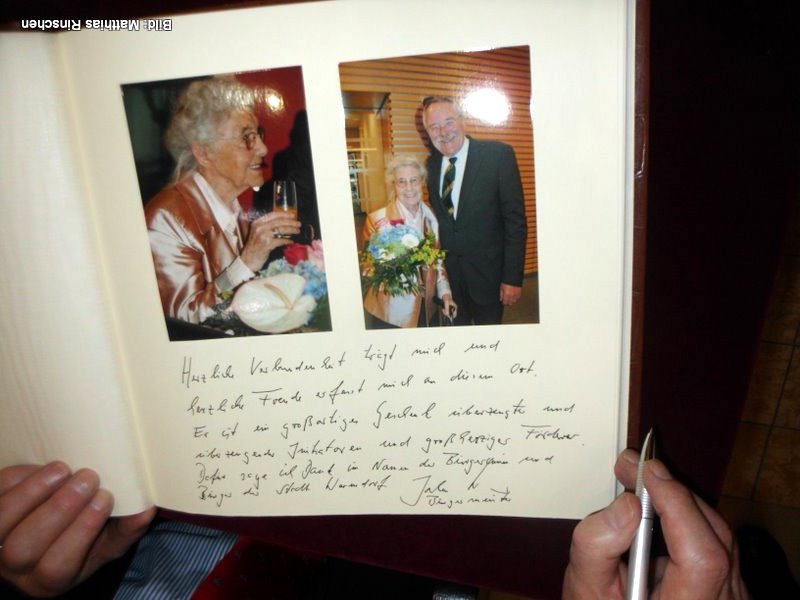 Bild: Matthias Rinschen
Herzliche Verbundenheit trägt mich und
herzliche Freude erfasst mich an diesem Ort.
Es ist ein großartiges Geschenk überzeugter und
überzeugender Initiatoren und großherziger Förderer.
Dafür sage ich Dank im Namen der Bürgerinnen und
Bürger der Stadt Warendorf
Bürgermeister